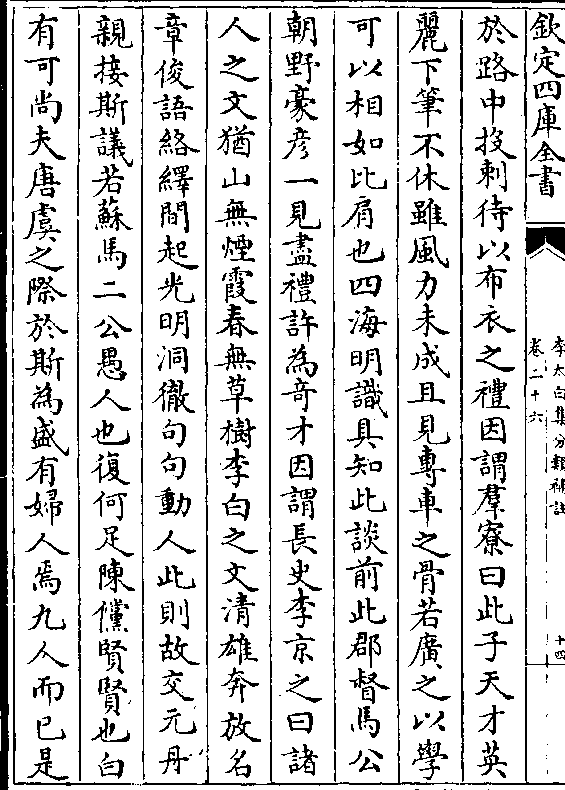 欽定四庫全書
李太白集分類補註
卷二十六
十四
於路中投刺待以布衣之禮因謂羣寮曰此子天才英
麗下筆不休雖風力未成且見專車之骨若廣之以學
可以相如比肩也四海明識具知此談前此郡督馬公
朝野豪彦一見盡禮許為竒才因謂長史李京之曰諸
人之文猶山無煙霞春無草樹李白之文清雄奔放名
章俊語絡繹間起光明洞徹句句動人此則故交元丹
親接斯議若蘇馬二公愚人也復何足陳儻賢賢也白
有可尚夫唐虞之際於斯為盛有婦人焉九人而已是